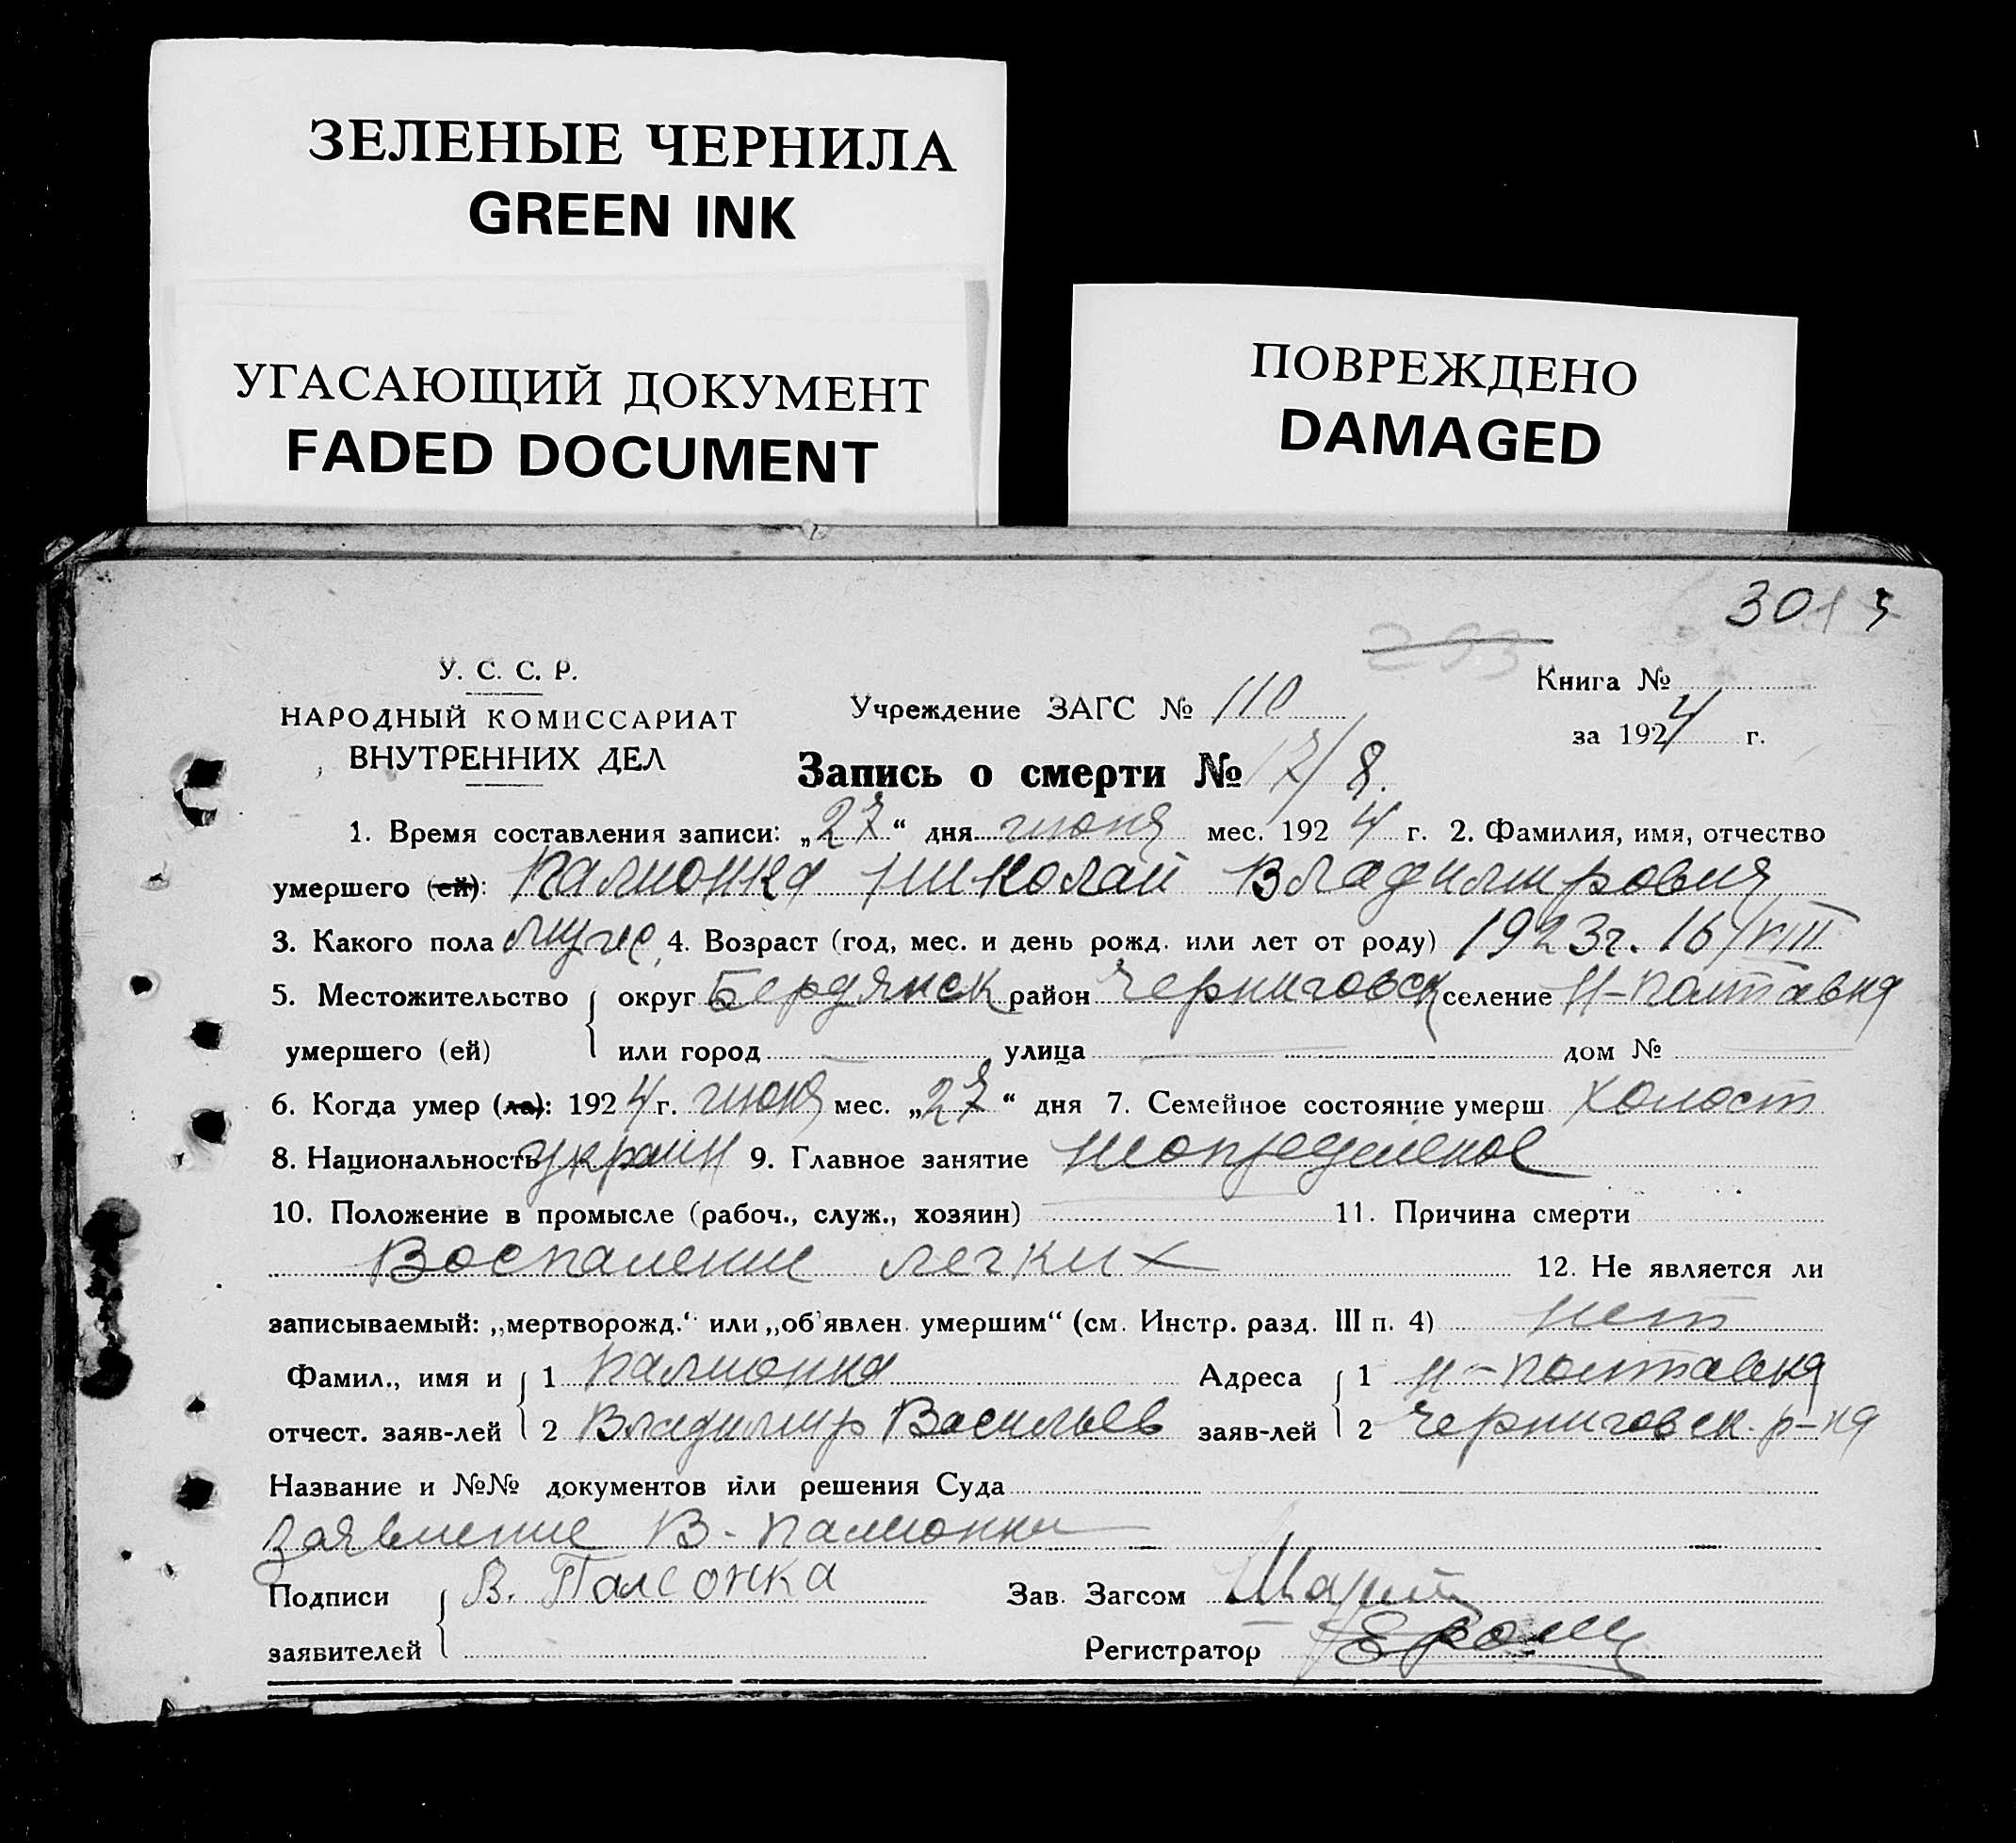 ЗЕЛЕНЫЕ ЧЕРНИЛА
GREEN INK
УГАСАЮЩИЙ ДОКУМЕНТ
FADED DOCUMENT
ПОВРЕЖДЕНО
DAMAGED
301
У. С. С. Р.
НАРОДНЫЙ КОМИССАРИАТ
ВНУТРЕННИХ ДЕЛ
Учреждение ЗАГС № 110
Книга №
за 1924 г.
Запись о смерти № 17/8.
1. Время составления записи: „27“ дня июня мес. 1924 г. 2. Фамилия, имя, отчество
умершего (ей): Палионка Николай Владимировия
3. Какого пола муже, 4. Возраст (год, мес. и день рожд. или лет от роду) 1923г. 16/VIII
5. Местожительство округ Бердянск район Черниговск селение Н-Полтавка
умершего (ей) или город улица дом №
6. Когда умер (ла): 1924 г. июня мес. „27“ дня 7. Семейное состояние умерш. холост
8. Национальность украин 9. Главное занятие неопределеное
10. Положение в промысле (рабоч., служ., хозяин) 11. Причина смерти
Воспаление легких 12. Не является ли
записываемый: „мертворожд.“ или „об'явлен. умершим“ (см. Инстр. разд. III п. 4) нет
Фамил., имя и 1 Палионка Адреса 1 Н-Полтавка
отчест. заяв-лей 2 Владимир Васильев заяв-лей 2 Черниговск. р-на
Название и №№ документов или решения Суда
Заявление В. Палионки
Подписи В. Палеонка Зав. Загсом
заявителей Регистратор